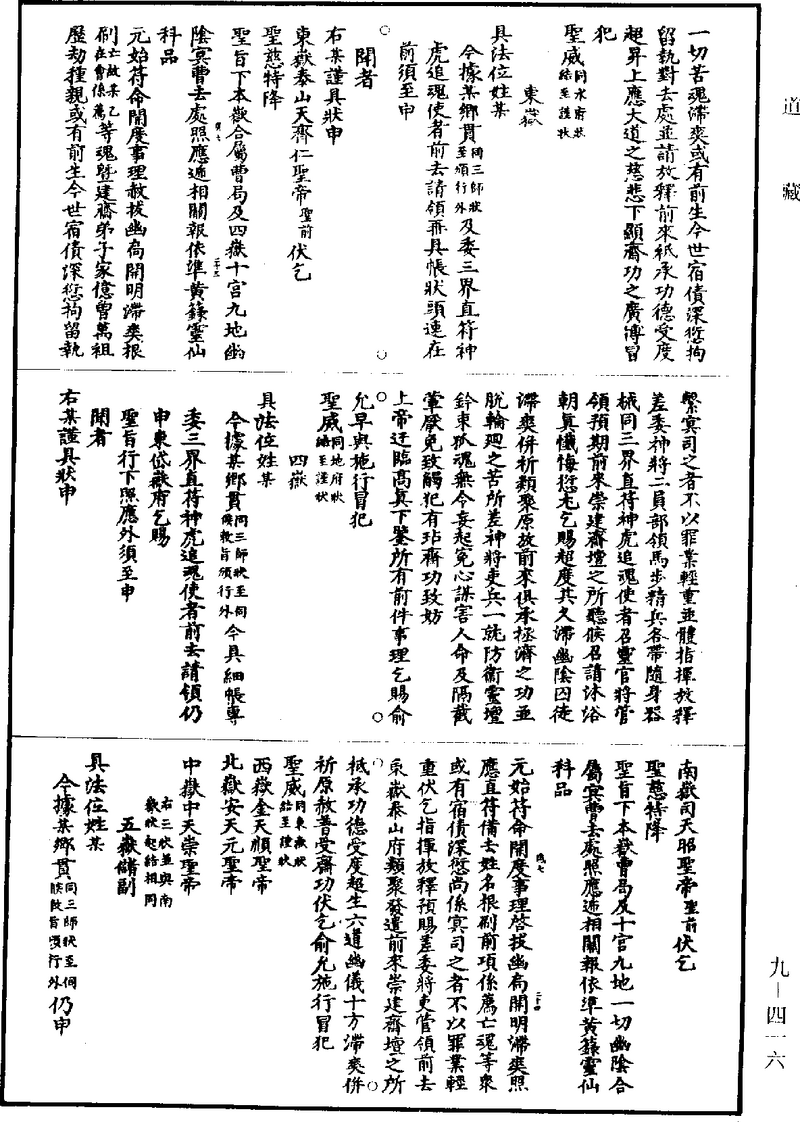 道藏
一切苦魂滯爽或有前生今世宿債深愆拘
留執對去處並請放釋前來祇承功德受度
超昇上應大道之慈悲下顯齋功之廣博冒
犯
聖威同水府狀結至謹狀
東嶽
具法位姓某
今據某鄉貫同三師狀至頒行外及委三界直符神
虎追魂使者前去請領再具帳狀頭連在
前須至申
聞者
右某謹具狀申
東嶽泰山天齊仁聖帝聖前伏乞
聖慈特降
聖旨下本嶽合屬曹局及四嶽十宮九地幽
陰冥曹去處照應遞相關報依準黃籙靈仙
科品
元始符命開度事理赦拔幽扃開明滯爽根
刷在會係薦亡故某乙等魂曁建齋弟子家億曾萬祖
歷劫種親或有前生今世宿債深愆拘留執
繫冥司之者不以罪業輕重並體指揮放釋
差委神將二員部領馬步精兵各帶隨身器
械同三界直符神虎追魂使者召靈官將管
領預期前來崇建齋壇之所聽候召請沐浴
朝眞懺悔愆尤乞賜超度其久滯幽陰囚徒
滯爽併祈類聚原放前來俱承拯濟之功並
脫輪迴之苦所差神將吏兵一就防衛靈壇
鈐束孤魂無令妄起冤心謀害人命及隔截
葷厭免致觸犯有玷齋功致妨
上帝迂臨高眞下鑒所有前件事理乞賜俞
允早與施行冒犯
聖威同地府狀結至謹狀
四嶽
具法位姓某
今據某鄉貫同三師狀至伺候敕旨頒行外今具細帳專
委三界直符神虎追魂使者前去請領仍
申東岱嶽府乞賜
聖旨行下照應外須至申
聞者
右某謹具狀申
南嶽司天昭聖帝聖前伏乞
聖慈特降
聖旨下本嶽曹局及十宮九地一切幽陰合
屬冥曹去處照應遞相關報依準黃籙靈仙
科品
元始符命開度事理啓拔幽扃開明滯爽照
應直符備去姓名根刷前項係薦亡魂等衆
或有宿債深愆尚係冥司之者不以罪業輕
重伏乞指揮放釋預賜差委將吏管領前去
東嶽泰山府類聚發遣前來崇建齋壇之所
祇承功德受度超生六道幽儀十方滯爽併
祈原赦普受齋功伏乞俞允施行冒犯
聖威同東嶽狀結至謹狀
西嶽金天順聖帝
北嶽安天元聖帝
中嶽中天崇聖帝
右三狀並與南嶽狀起結相同
五嶽儲副
具法位姓某
今據某鄉貫同三師狀至伺候敕旨頒行外仍申
九－四一六